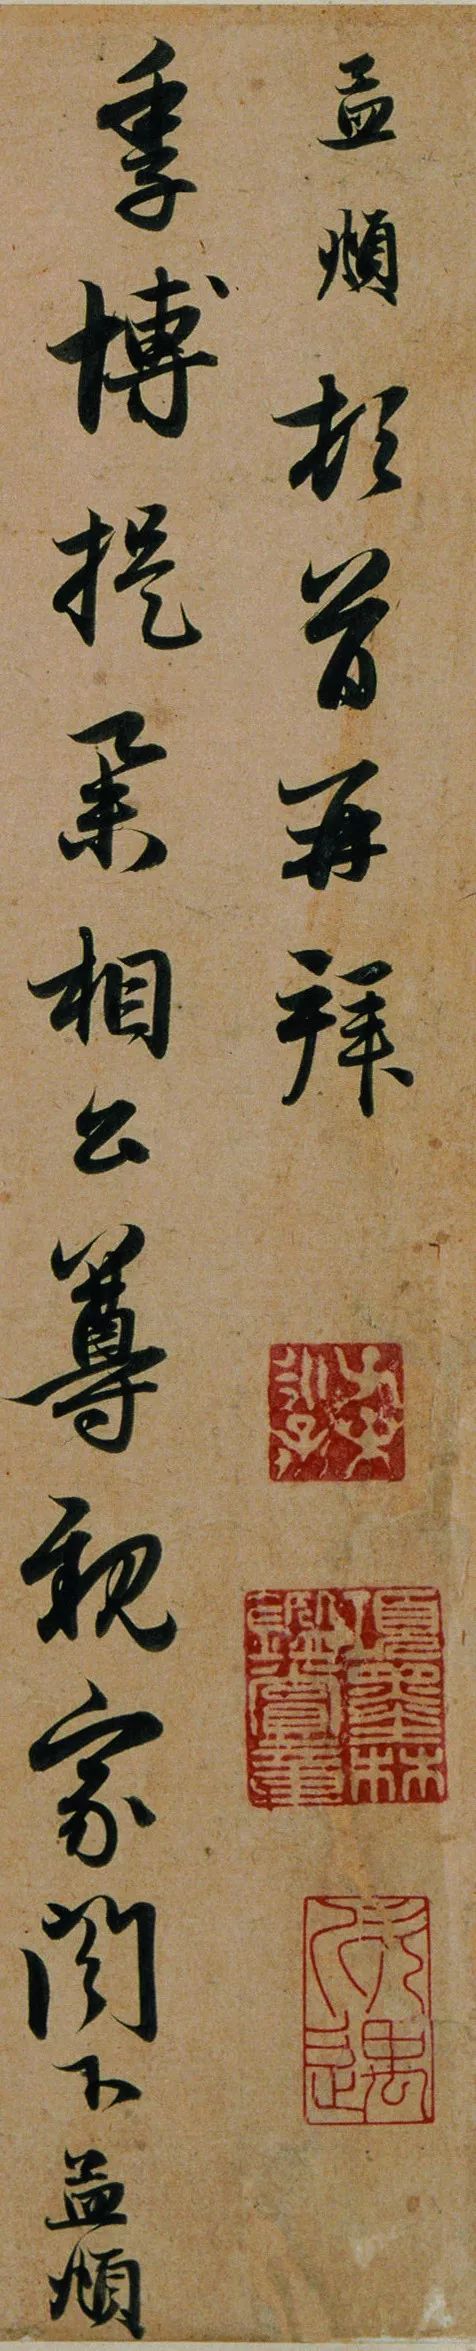 孟頫頓首再拜
季博提舉相公尊親家閤下孟頫
項墨林鑑賞章